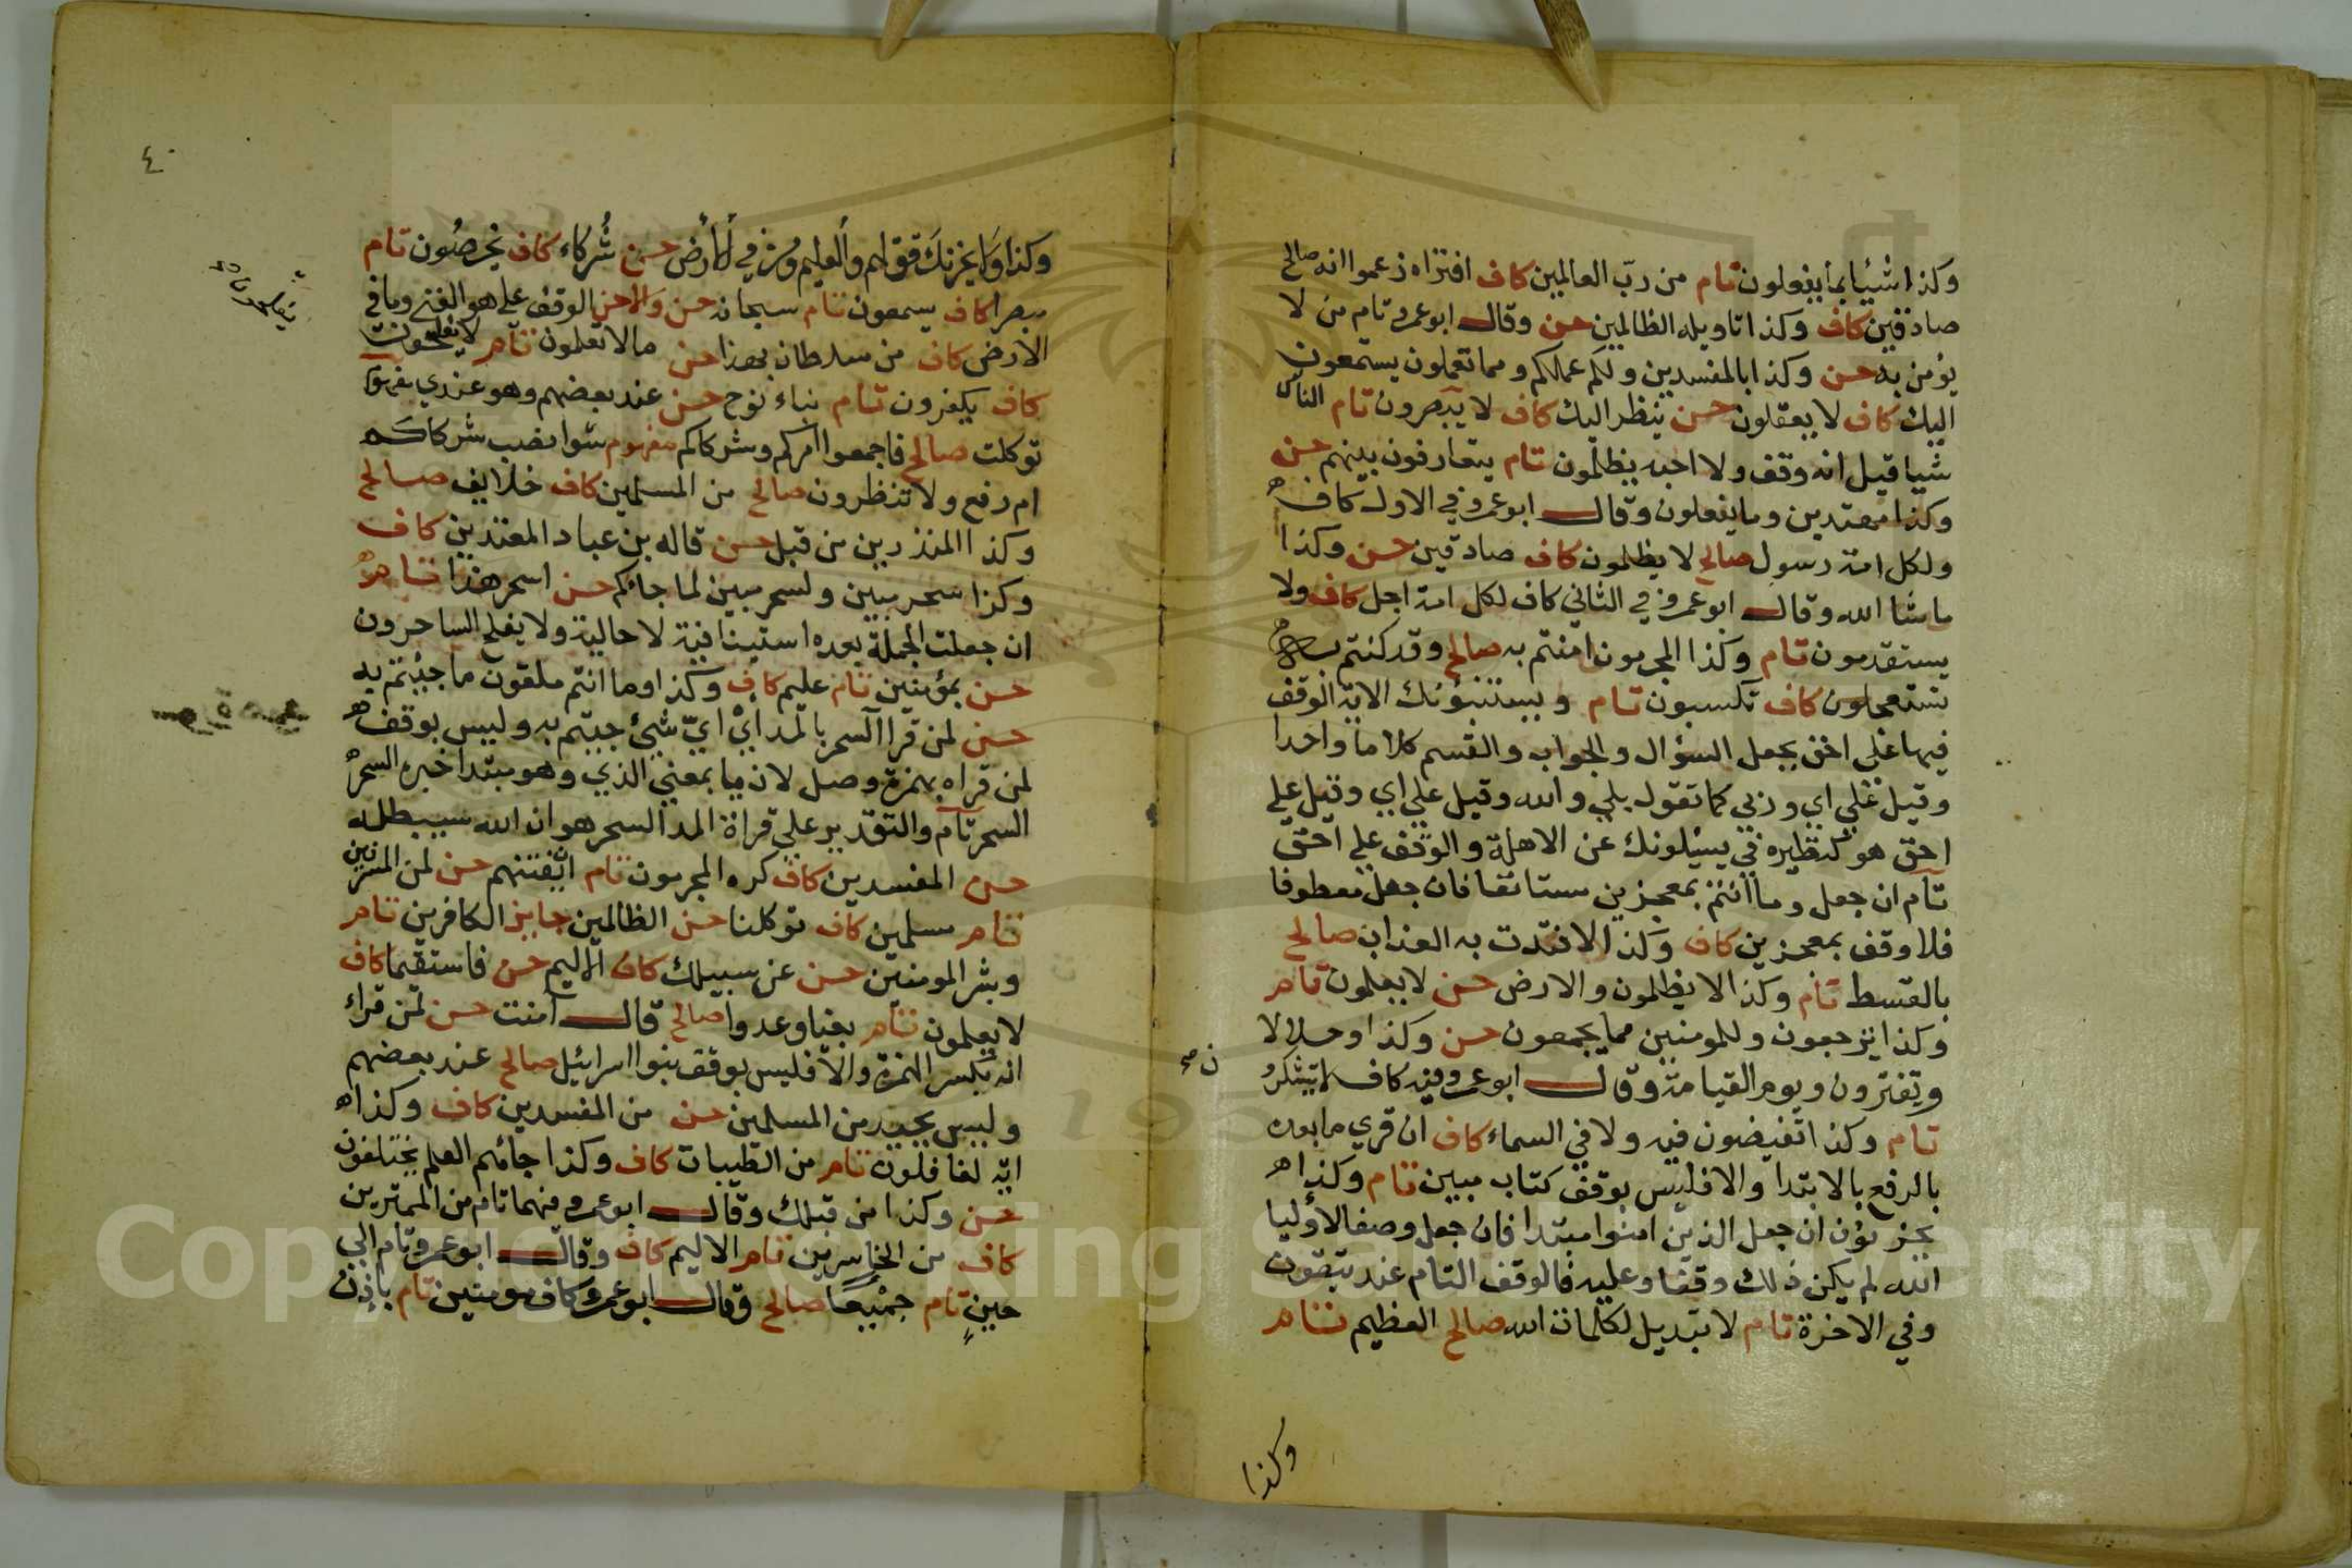 وكذا شيئا بما يفعلون تام من رب العالمين كاف افتراه زعموا انه صالح
صادقين كاف وكذا تاويله الظالمين حسن وقال ابو عمرو تام من لا
يؤمن به حسن وكذا بالمفسدين ولكم عملكم ومما تعملون يستمعون
اليك كاف لا يعقلون حسن ينظر اليك كاف لا يبصرون تام الناس
شيا قيل انه وقف ولا احبه يظلمون تام يتعارفون بينهم حسن
وكذا مهتدين وما يفعلون وقال ابو عمرو في الاول كاف
ولكل امة رسول صالح لا يظلمون كاف صادقين حسن وكذا
ما شا الله وقال ابو عمرو في الثاني كاف لكل امة اجل كاف ولا
يستقدمون تام وكذا المجرمون امنتم به صالح وقد كنتم به
تستعجلون كاف تكسبون تام ويستنبؤنك الاية الوقف
فيها على احق بجعل السؤال والجواب والقسم كلاما واحدا
وقيل على اي وربي كما تقول بلي والله وقيل علي اي وقيل علي
احق هو كنظيره في يسئلونك عن الاهلة والوقف علي احق
تام ان جعل وما انتم بمعجزين مستانفا فان جعل معطوفا
فلا وقف بمعجزين كاف وكذا لافتدت به العذاب صالح
بالقسط تام وكذا لا يظلمون والارض حسن لا يعلمون تام
وكذا ترجعون وللمومنين مما يجمعون حسن وكذا وحلالا
وتفترون ويوم القيامة وقال ابو عمرو فيه كاف لا يشكرون
تام وكذا اتفيضون فيه ولا في السماء كاف ان قري ما بعده
بالرفع بالابتدا والا فليس بوقف كتاب مبين تام وكذا
يحزنون ان جعل الذين امنوا مبتدا فان جعل وصفا لاوليا
الله لم يكن ذلك وقفا وعليه فالوقف التام عند يتقون
وفي الاخرة تام لا تبديل لكلمات الله صالح العظيم تام
وكذا
٤٠
وكذا ولا يحزنك قولهم والعليم ومن في الارض حسن شركاء كاف يخرصون تام
مبصرا كاف يسمعون تام سبحانه حسن والاحسن الوقف علي هو الغني وما في
الارض كاف من سلطان بهذا حسن ما لا تعلمون تام لا يفلحون
كاف يكفرون تام نباء نوح حسن عند بعضهم وهو عندي مفهوم
توكلت صالح فاجمعوا امركم وشركاكم مفهوم سوا نصب شركاكم
ام رفع ولا تنظرون صالح من المسلمين كاف خلايف صالح
وكذا المنذرين من قبل حسن قاله بن عباد المعتدين كاف
وكذا سحر مبين ولسحر مبين لما جائكم حسن اسحر هذا تام
ان جعلت الجملة بعده استينافية لا حالية ولا يفلح الساحرون
حسن بمؤمنين تام عليم كاف وكذا وما انتم ملقون ما جئتم به
حسن لمن قرا آلسحر بالمد اي اي شئ جيتم به وليس بوقف
لمن قراه بهمزة وصل لان ما بمعني الذي وهو مبتدا خبره السحر
السحر تام والتقدير علي قراة المد السحر هو ان الله سيبطله
حسن المفسدين كاف كره المجرمون تام ان يفتنهم حسن لمن المسرفين
تام مسلمين كاف توكلنا حسن الظالمين جايز الكافرين تام
وبشر المومنين حسن عن سبيلك كاف الاليم حسن فاستقيما كاف
لا يعلمون تام بغيا وعدوا صالح قال آمنت حسن لمن قراء
انه بكسر الهمزة والا فليس بوقف بنوا اسرائيل صالح عند بعضهم
وليس بجيد من المسلمين حسن من المفسدين كاف وكذا
اية لغافلون تام من الطيبات كاف وكذا جائهم العلم يختلفون
حسن وكذا من قبلك وقال ابو عمرو فيهما تام من الممترين
كاف من الخاسرين تام الاليم كاف وقال ابو عمرو تام الي
حين تام جميعا صالح وقال ابو عمرو كاف مومنين تام باذن
Copyright © King Saud University